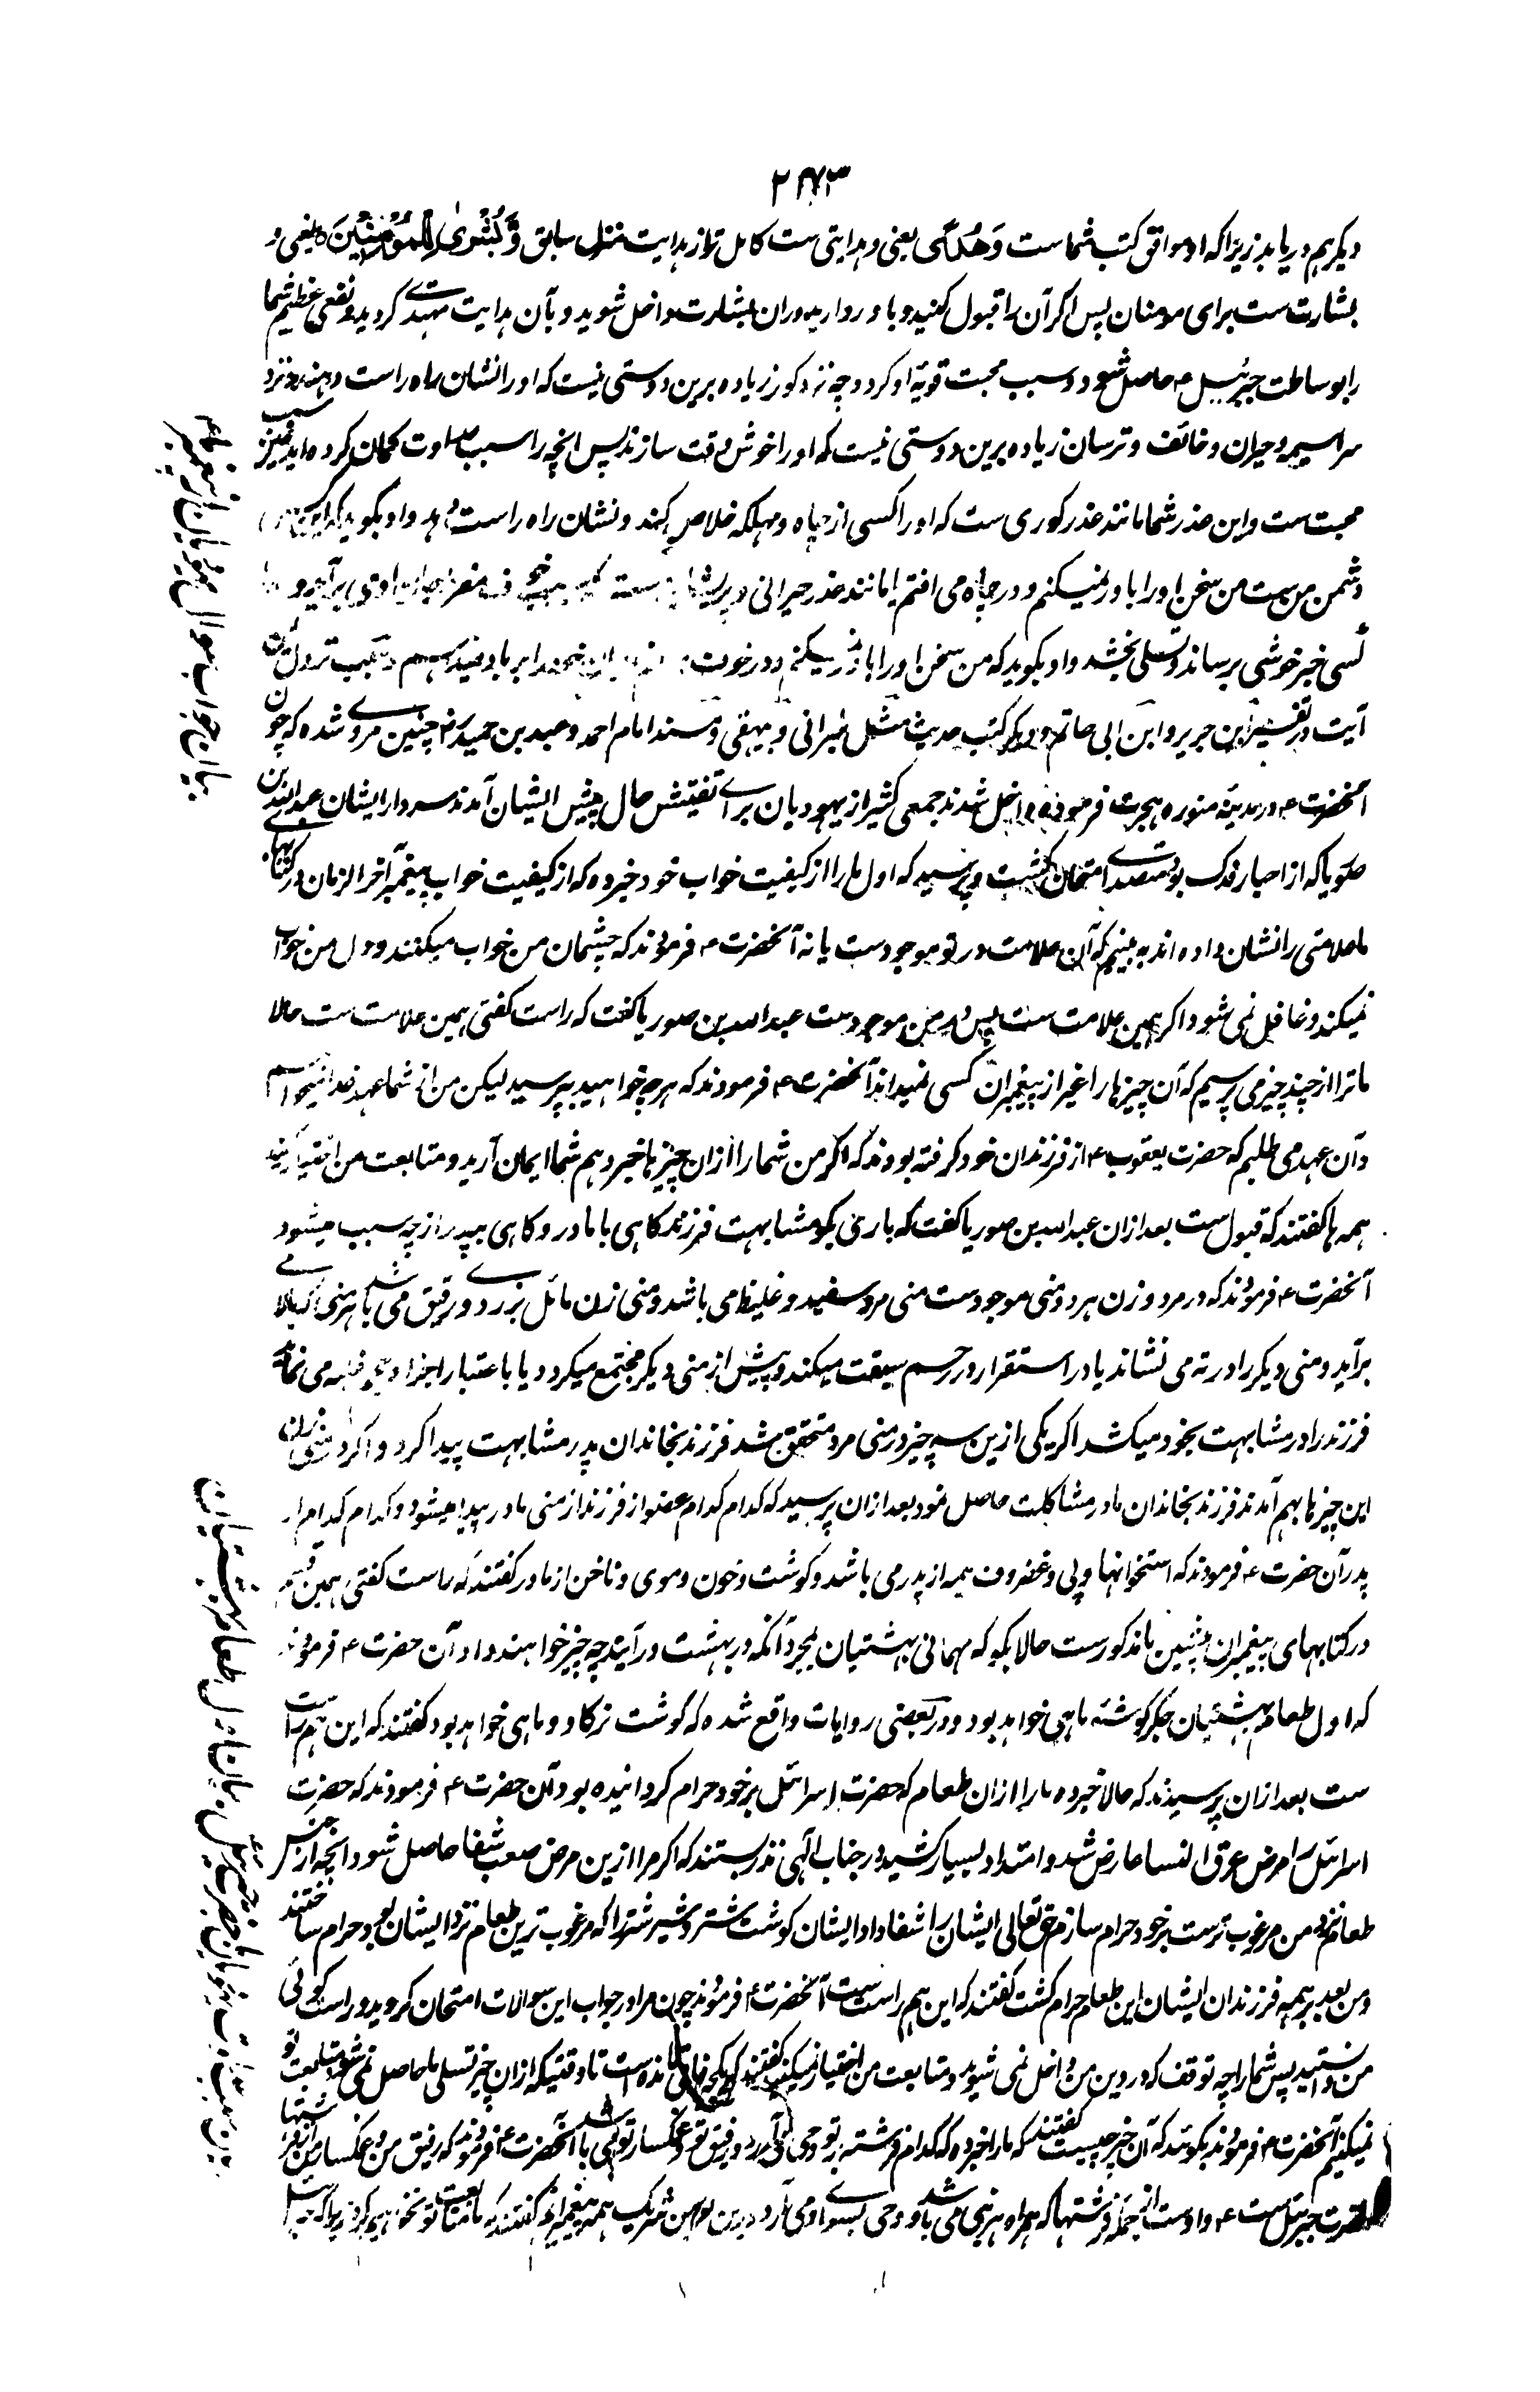 ۲۴۷۳
دیگر هم دریابد زیرا که او موافق کتب شماست وَهُدًى یعنی و هدایتی ست کامل تر از هدایت منزل سابق وَّبُشْرٰى لِلْمُؤْمِنِيْنَ ه یعنی و
بشارت ست برای مومنان پس اگر آن را قبول کنید و باور دارید دران بشارت داخل شوید و بآن هدایت مهتدے گردید و نفعی عظیم شما
را بوساطت جبرئیل ع حاصل شود و سبب محبت قویه او گردد چه نزد کور زیاده برین دوستی نیست که او را نشان راه راست دهند و نزد
سراسیمه و حیران و خائف و ترسان زیاده برین دوستی نیست که او را خوش وقت سازند پس انچه را سبب عداوت گمان کرده اید سبب
محبت ست و این عذر شما مانند عذر کوری ست که او را کسی از چاه و مهلکه خلاص کند و نشان راه راست دهد و او بگوید که این
دشمن من ست من سخن او را باور نمیکنم و در چاه می افتم یا مانند عذر حیرانی و پریشانی ست که
کسی خبر خوشی برساند و تسلی بخشد و او بگوید که من سخن او را باور نمیکنم و در خوف
آیت در تفسیر ابن جریر و ابن ابی حاتم و دیگر کتب حدیث مثل طبرانی و بیهقی و مسند امام احمد و عبد بن حمید رض چنین مروے شده که چون
آنحضرت ع در مدینه منوره هجرت فرموده داخل شدند جمعی کثیر از یهودیان براے تفتیش حال پیش ایشان آمدند سردار ایشان عبد الله بن
صوریا که از احبار فدک بود متصدے امتحان گشت و پرسید که اول ما را از کیفیت خواب خود خبر ده که از کیفیت خواب پیغمبر آخر الزمان در کتابهاے
ما علامتی را نشان داده اند به بینم که آن علامت در تو موجودست یا نه آنحضرت ع فرمودند که چشمان من خواب میکنند و دل من خواب
نمیکند و غافل نمی شود اگر همین علامت ست پس در من موجودست عبد الله بن صوریا گفت که راست گفتی همین علامت ست حالا
ما ترا از چند چیز می پرسیم که آن چیزها را غیر از پیغمبران کسی نمیداند آنحضرت ع فرمودند که هر چه خواهید بپرسید لیکن من از شما عهد خدا میخواهم
و آن عهد می طلبم که حضرت یعقوب ع از فرزندان خود گرفته بودند که اگر من شما را ازان چیزها خبر دهم شما ایمان آرید و متابعت من اختیار کنید
همه ها گفتند که قبول ست بعد ازان عبد الله بن صوریا گفت که باری بگو مشابهت فرزند گاهی با مادر و گاهی بپدر از چه سبب میشود
آنحضرت ع فرمودند که در مرد و زن هر دو منی موجودست منی مرد سفید و غلیظ می باشد و منی زن مائل بزردے و رقیق می باشد هر منی که بالا مے
برآید و منی دیگر را در ته می نشاند یا در استقرار در رحم سبقت میکند و پیش از منی دیگر مجتمع میگردد یا باعتبار اجزا و غلبه می نماید
فرزند را در مشابهت بخود میکشد اگر یکی ازین سه چیز در منی مرد متحقق شد فرزند بخاندان پدر مشابهت پیدا کرد و اگر در منی زن
این چیزها بهم آمدند فرزند بخاندان مادر مشاکلت حاصل نمود بعد ازان پرسید که کدام کدام عضو از فرزند از منی مادر پیدا میشود و کدام کدام از
پدر آن حضرت ع فرمودند که استخوانها و پی و غضروف همه از پدر می باشد و گوشت و خون و موی و ناخن از مادر گفتند که راست گفتی همین قسم
در کتابهای پیغمبران پیشین ما مذکورست حالا بگو که مهمانی بهشتیان بمجرد آنکه در بهشت درآیند چه چیز خواهند داد آن حضرت ع فرمودند
که اول طعام بهشتیان جگر گوشه ماهی خواهد بود و در بعضی روایات واقع شده که گوشت نر گاو و ماهی خواهد بود گفتند که این هم راست
ست بعد ازان پرسیدند که حالا خبر ده ما را ازان طعام که حضرت اسرائیل بر خود حرام گردانیده بود آن حضرت ع فرمودند که حضرت
اسرائیل را مرض عرق النسا عارض شد و امتداد بسیار کشید در جناب الٰهی نذر بستند که اگر مرا ازین مرض صعب شفا حاصل شود انچه از جنس
طعام نزد من مرغوب ترست بر خود حرام سازم حق تعالی ایشان را شفا داد ایشان گوشت شتر و شیر شتر را که مرغوب ترین طعام نزد ایشان بود حرام ساختند
و من بعد بر همه فرزندان ایشان این طعام حرام گشت گفتند که این هم راست ست آنحضرت ع فرمودند چون مرا در جواب این سوالات امتحان کردید و راست گوئی
من دانستید پس شما را چه توقف که در دین من داخل نمی شوید و متابعت من اختیار نمیکنید گفتند که یک چیز باقی مانده است تا وقتیکه ازان چیز تسلی ما حاصل نمی شود متابعت تو
نمیکنیم آنحضرت ع فرمودند بگوئید که آن چیز چیست گفتند که ما را خبر ده که کدام فرشته بر تو وحی می آرد و رفیق تو و غمگسار تو می باشد آنحضرت ع فرمودند که رفیق من و غمگسار من از فرشتها
حضرت جبرئیل ست ع و اوست از جمله فرشتها که همراه هر نبی می باشد و وحی بسوے او می آرد درین امر من شریک همه پیغمبرانم گفتند که ما متابعت تو نخواهیم کرد زیرا که جبرئیل
بیان جواب سوال